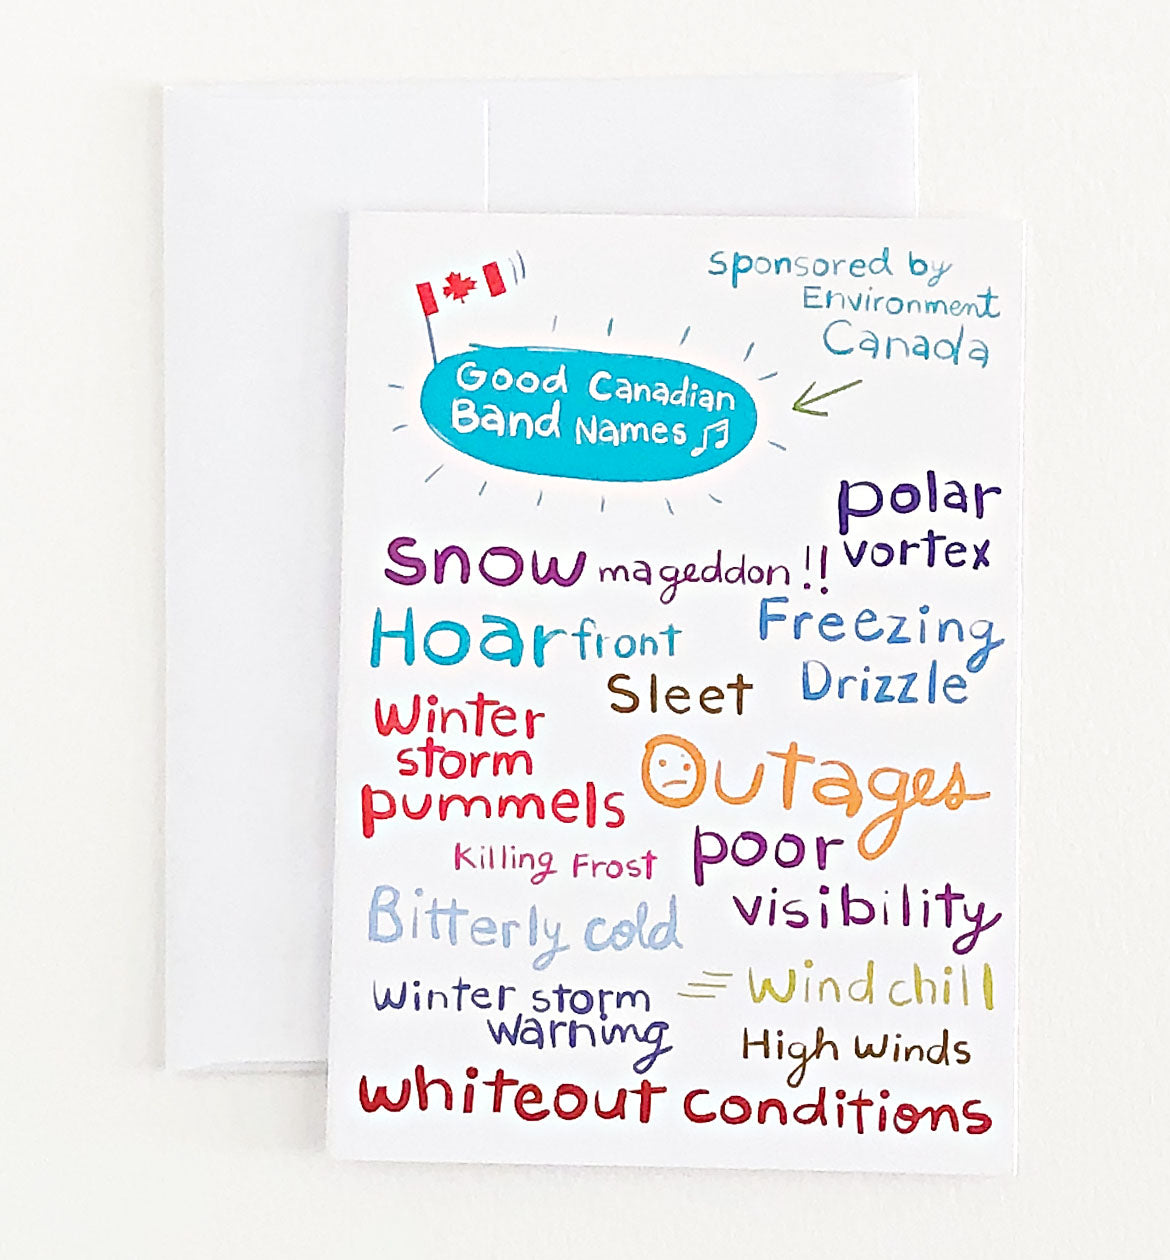 sponsored by
Environment
Canada
Good Canadian
Band Names
polar
vortex
Snowmageddon!!
Hoarfront
Freezing
Drizzle
Sleet
Winter
storm
pummels
Outages
Killing Frost
poor
visibility
Bitterly cold
Wind chill
Winter storm
warning
High Winds
whiteout conditions